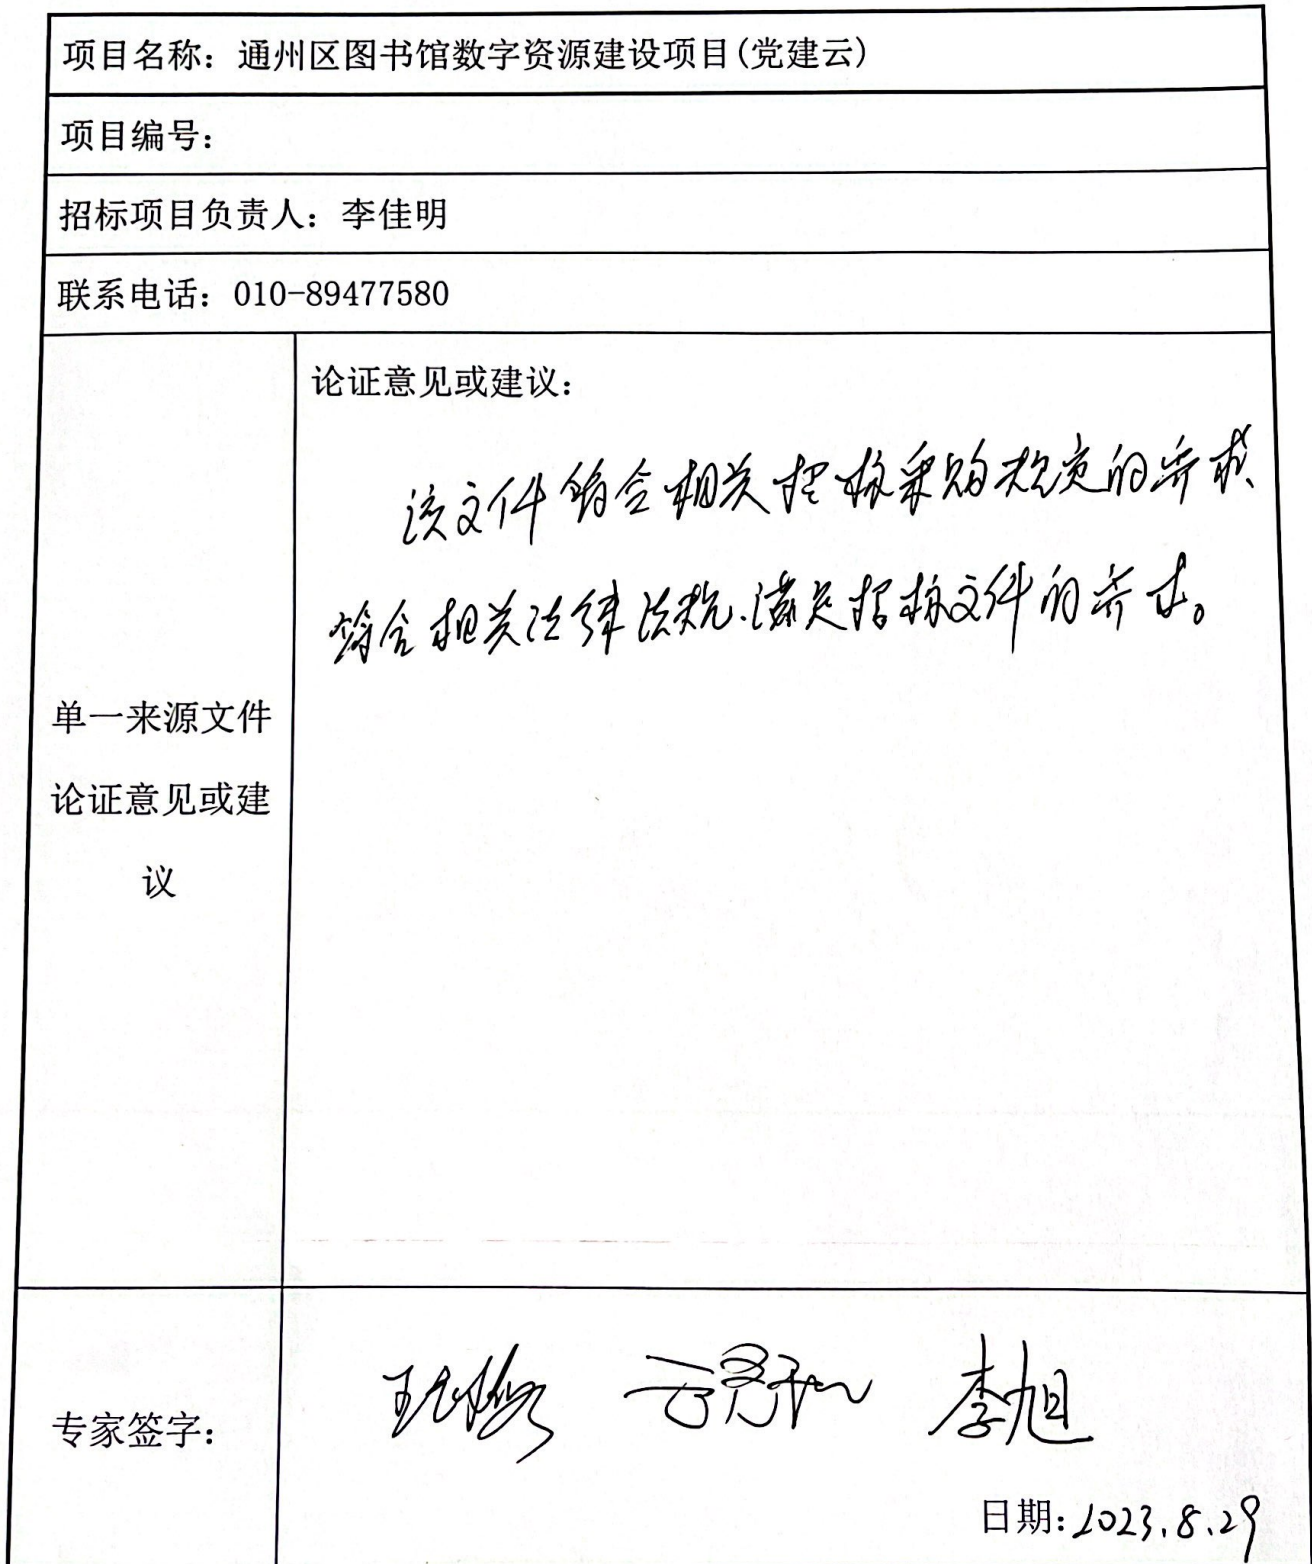 项目名称：通州区图书馆数字资源建设项目(党建云)
项目编号：
招标项目负责人：李佳明
联系电话：010-89477580
单一来源文件
论证意见或建
议
论证意见或建议：
该文件符合相关招标采购规定的要求、
符合相关法律法规.满足招标文件的要求。
专家签字：
李旭
日期：2023.8.29